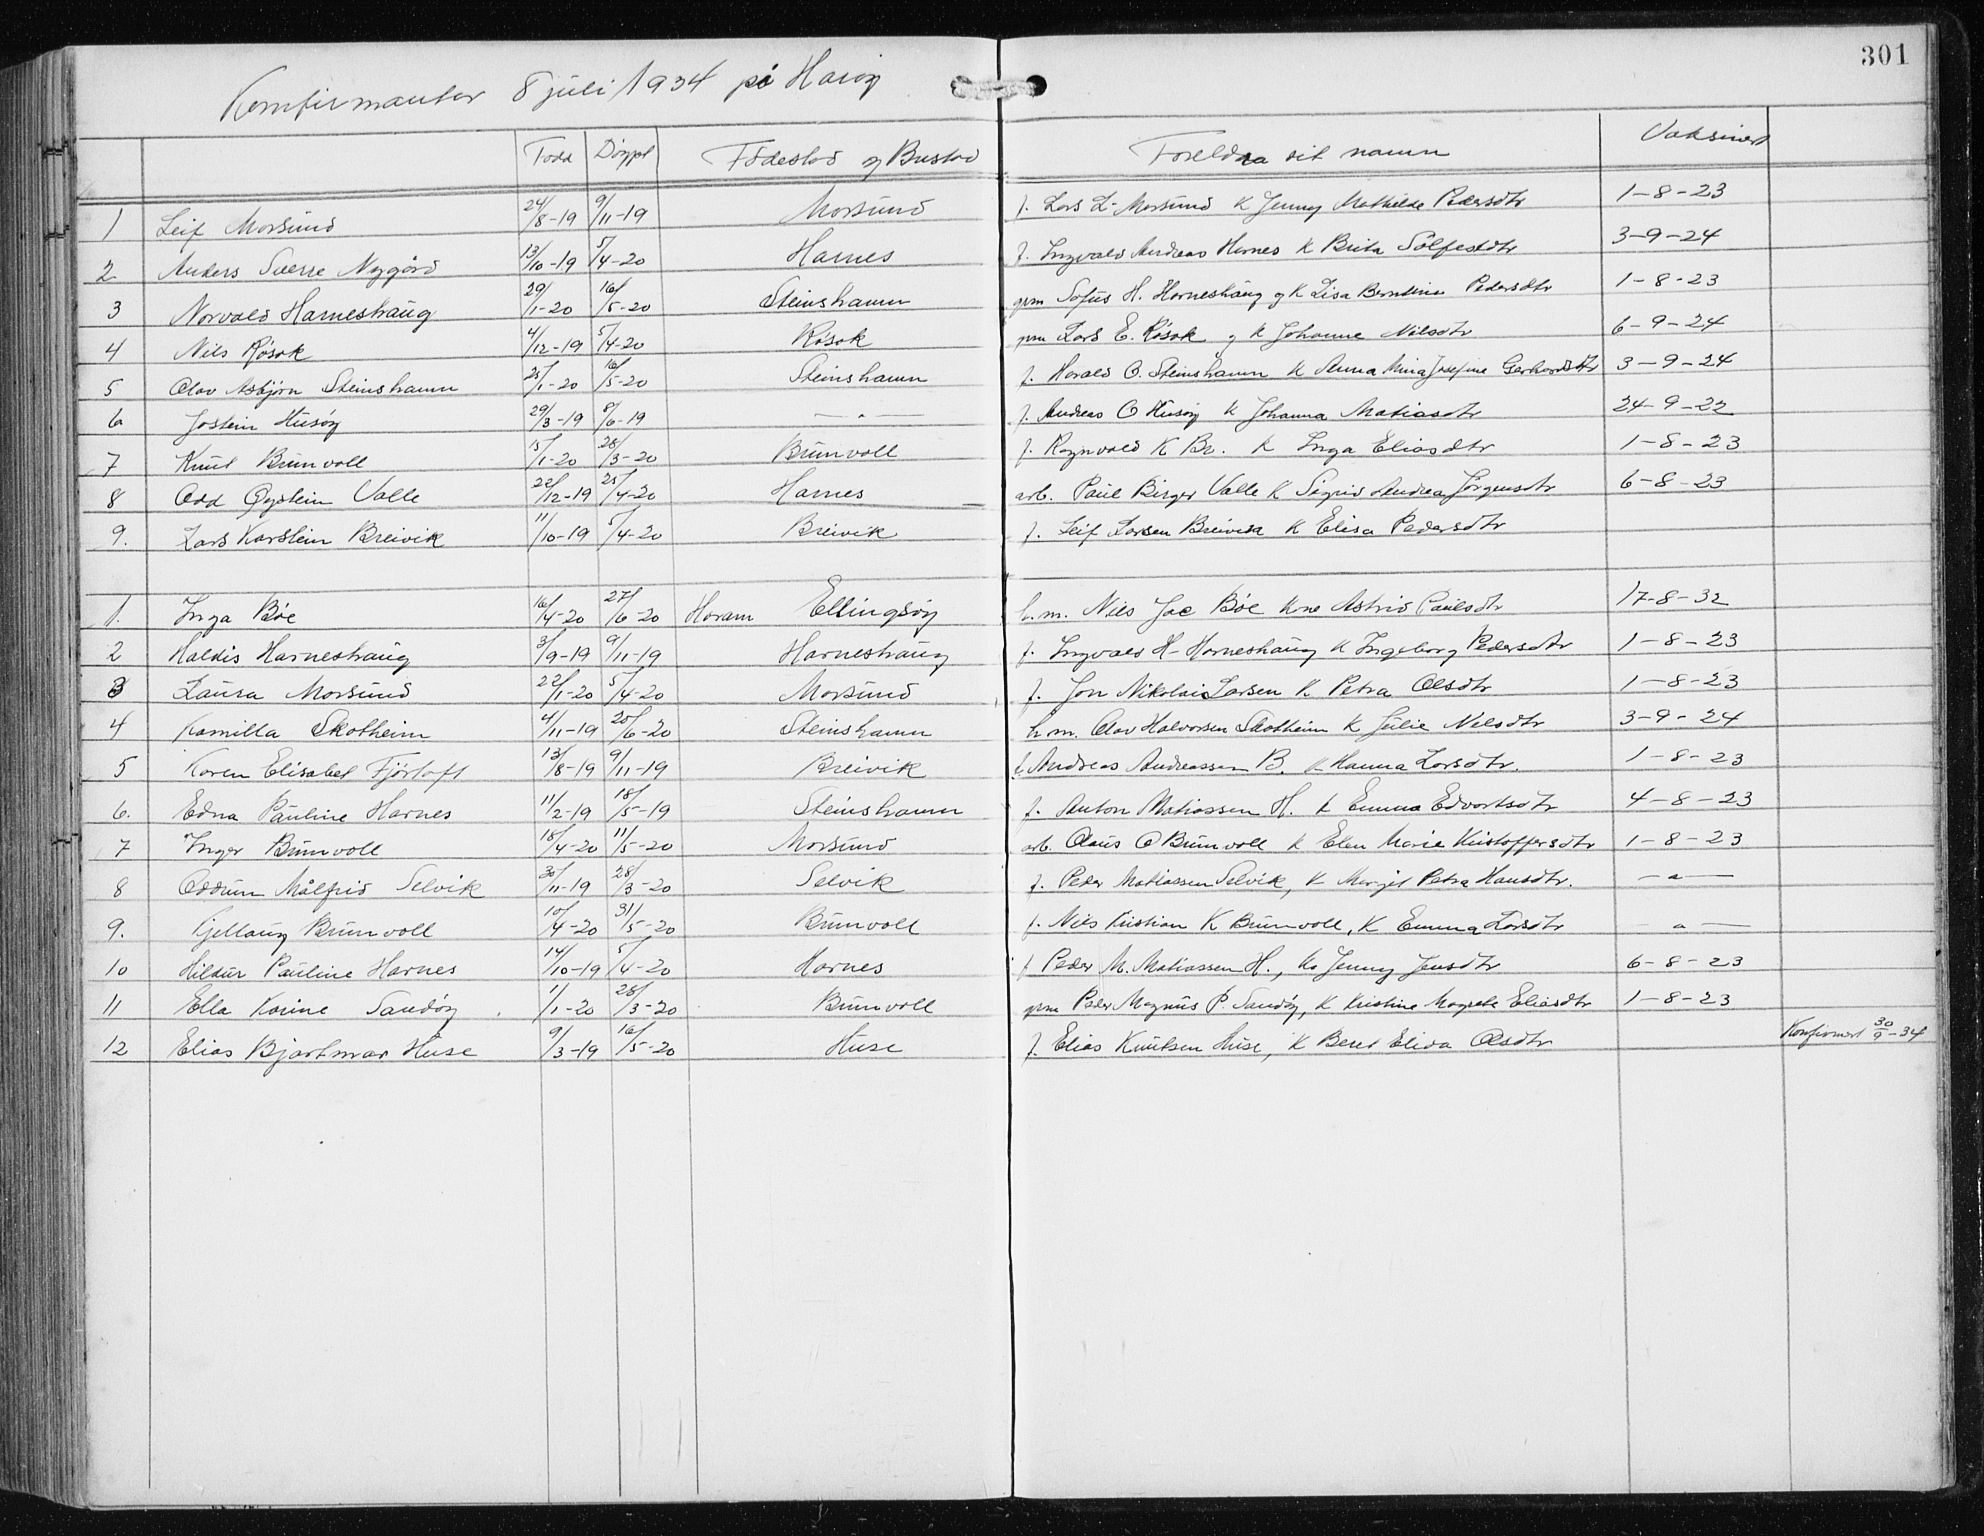 301
Konfirmanter 8 juli 1934 på Harøy
Fødd Døypt Fødestad og Bustad Foreldra sit namn Vaksinert
1 Leif Morsund 24/8-19 9/11-19 Morsund f. Lars L. Morsund k Jenny Mathilde Pedersdtr 1-8-23
2 Anders Sverre Nygård 13/10-19 5/4-20 Harnes f. Ingvald Andreas Harnes k Brita Sølfestdtr 3-9-24
3 Norvald Harneshaug 29/1-20 16/5-20 Steinshamn grm Sofus H. Harneshaug og k Lisa Berntine Pedersdtr 1-8-23
4 Nils Røsok 4/12-19 5/4-20 Røsok grm Lars E. Røsok og k Johanne Nilsdtr 6-9-24
5 Olav Asbjørn Steinshamn 25/1-20 16/5-20 Steinshamn f. Harald O. Steinshamn k Anna Mina Josefine Gerhardsdtr 3-9-24
6 Jostein Husøy 29/3-19 8/6-19 — " — f. Andreas O Husøy k Johanna Matiasdtr 24-9-22
7 Knut Brunvoll 15/1-20 28/3-20 Brunvoll f. Ragnvald K Br. k Inga Eliasdtr 1-8-23
8 Odd Øystein Valle 22/12-19 25/4-20 Harnes arb. Paul Birger Valle k Sigrid Andrea Jørgensdtr 6-8-23
9. Lars Karstein Breivik 11/10-19 5/4-20 Breivik f. Leif Larsen Breivik k Elisa Pedersdtr
1. Inga Bøe 16/4-20 27/6-20 Haram Ellingsøy h.m. Nils Jac Bøe kne Astrid Paulsdtr 17-8-32
2 Haldis Harneshaug 3/9-19 9/11-19 Harneshaug f. Ingvald H. Harneshaug k Ingeborg Pedersdtr 1-8-23
3 Laura Morsund 22/1-20 5/4-20 Morsund f. Jon Nikolai Larsen k Petra Olsdtr 1-8-23
4 Kamilla Skotheim 4/11-19 20/6-20 Steinshamn h.m. Olav Halvorsen Skotheim k Julie Nilsdtr 3-9-24
5 Karen Elisabet Fjørtoft 13/8-19 9/11-19 Breivik f. Andreas Andreassen B. k Hanna Larsdtr. 1-8-23
6. Edna Pauline Harnes 11/2-19 18/5-19 Steinshamn f. Anton Matiassen H. k Emma Edvartsdtr 4-8-23
7 Inger Brunvoll 18/4-20 11/5-20 Morsund arb. Olaus O Brunvoll k Elen Marie Kristoffersdtr 1-8-23
8 Oddrun Målfrid Selvik 30/11-19 28/3-20 Selvik f. Peder Matiassen Selvik, k Margit Petra Hansdtr. — " —
9. Kjellaug Brunvoll 10/4-20 31/5-20 Brunvoll f. Nils Kristian K Brunvoll, k Emma Larsdtr — " —
10 Hildur Pauline Harnes 14/10-19 5/4-20 Harnes f Peder M. Matiassen H., k Jenny Jensdtr 6-8-23
11 Ella Karine Sandøy 1/1-20 28/3-20 Brunvoll grm Peder Magnus P. Sandøy, k Kristine Magrete Eliasdtr 1-8-23
12 Elias Bjartmar Huse 9/3-19 16/5-20 Huse f. Elias Knutsen Huse, k Beret Elida Olsdtr Konfirmert 30/9-34